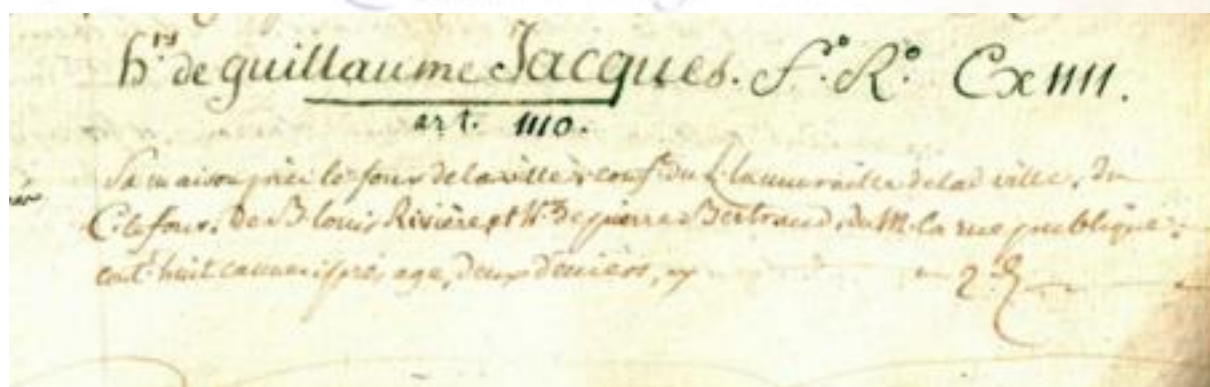 h.rs de guillaume Jacques. f.o R.o Cx1111.
art. 1110.
Sa maison près le four de la ville, conf.t du L. la muraille de lad. ville, du
C. le four, de B. louis Rivière, et h.rs de pierre Bertrand, du M. la rue publique;
cont.t huit cannes, age, deux deniers, cy 2 d